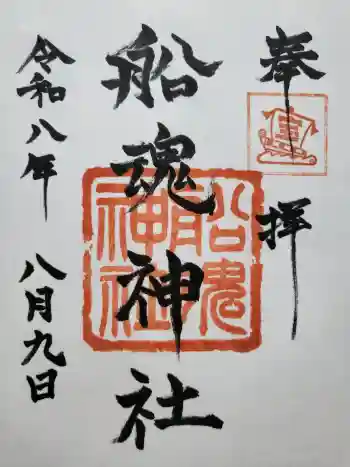 奉拝
船魂神社
令和八年 八月九日
船魂神社